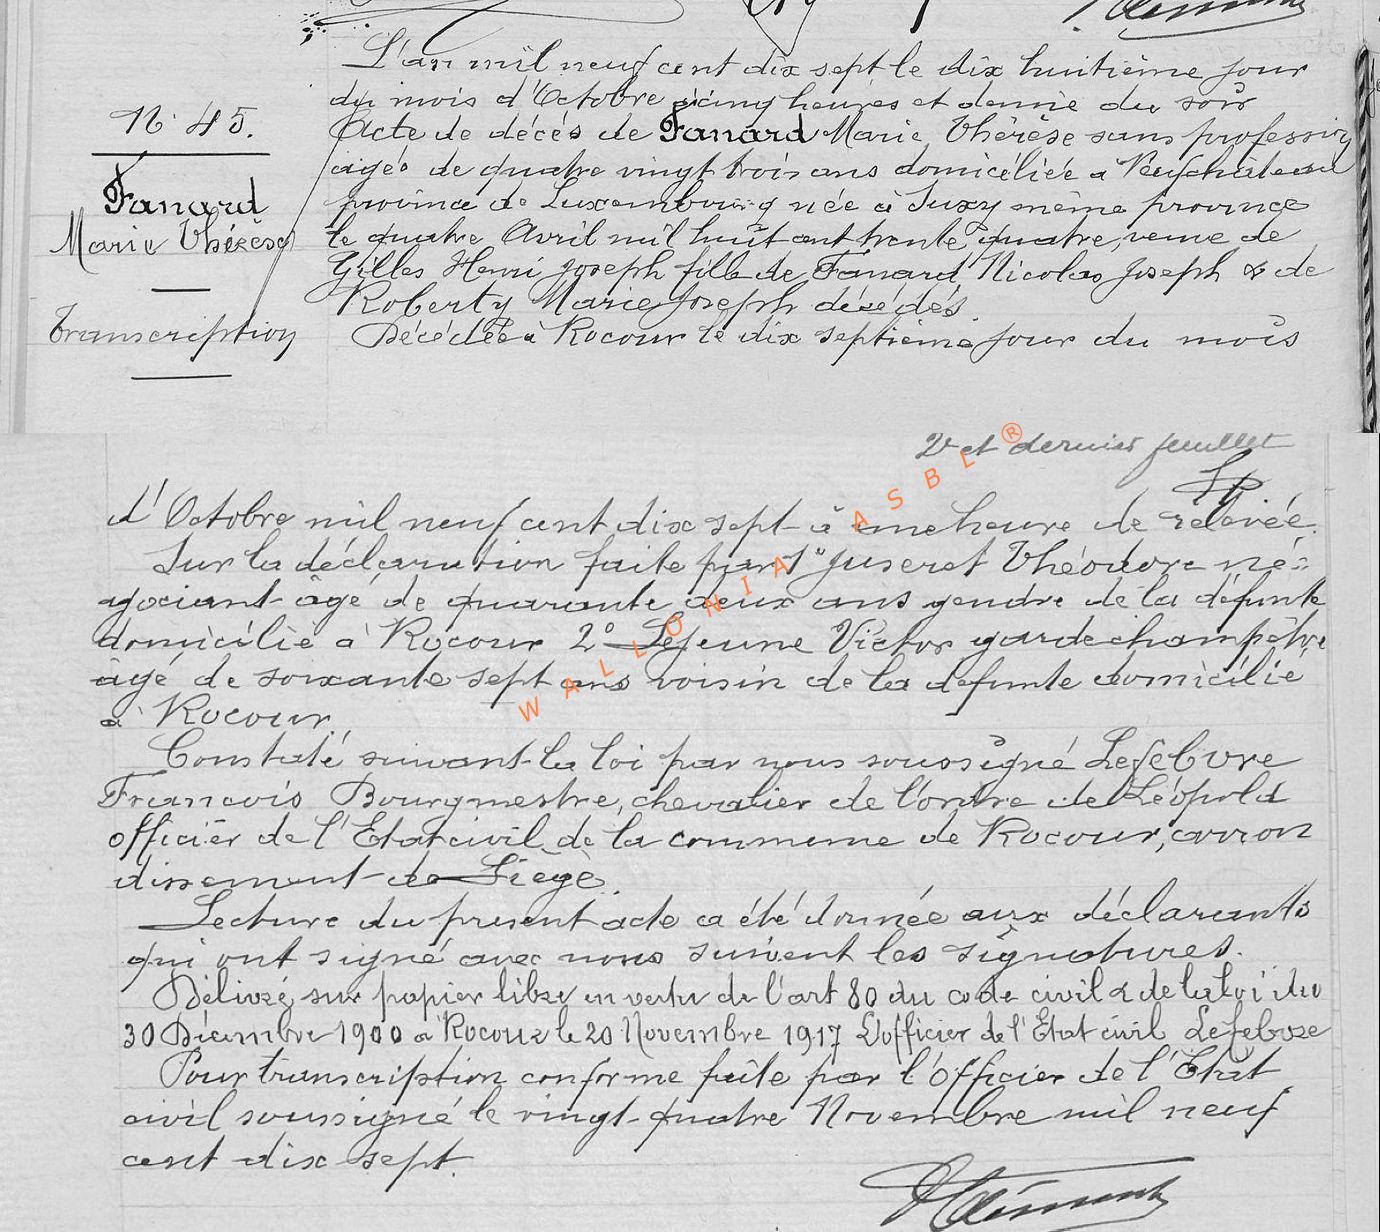 N° 45.
Fanard
Marie Thérèse
Transcription
L'an mil neuf cent dix sept le dix huitième jour
du mois d'Octobre à cinq heures et demie du soir
Acte de décès de Fanard Marie Thérèse sans profession
agée de quatre vingt trois ans domiciliée à Neufchâteau
province de Luxembourg née à Suxy même province
le quatre Avril mil huit cent trente quatre, veuve de
Gilles Henri Joseph fille de Fanard Nicolas Joseph & de
Roberty Marie Joseph décédés.
Décédée à Rocour le dix septième jour du mois
2e et dernier feuillet
d'Octobre mil neuf cent dix sept à une heure de relevée.
Sur la déclaration faite par 1° Juseret Théodore né-
gociant âgé de quarante deux ans gendre de la défunte
domicilié à Rocour 2° Lejeune Victor garde champêtre
âgé de soixante sept ans voisin de la défunte domicilié
à Rocour
Constaté suivant la loi par nous soussigné Lefebvre
François Bourgmestre, chevalier de l'ordre de Léopold
officier de l'Etat civil de la commune de Rocour, arron
dissement de Liège.
Lecture du present acte a été donnée aux déclarants
qui ont signé avec nous suivent les signatures.
Délivré sur papier libre en vertu de l'art 80 du code civil & de la loi du
30 Décembre 1900 à Rocour le 20 Novembre 1917 L'officier de l'Etat civil Lefebvre
Pour transcription conforme faite par l'Officier de l'Etat
civil soussigné le vingt-quatre Novembre mil neuf
cent dix sept.
WALLONIA ASBL ®